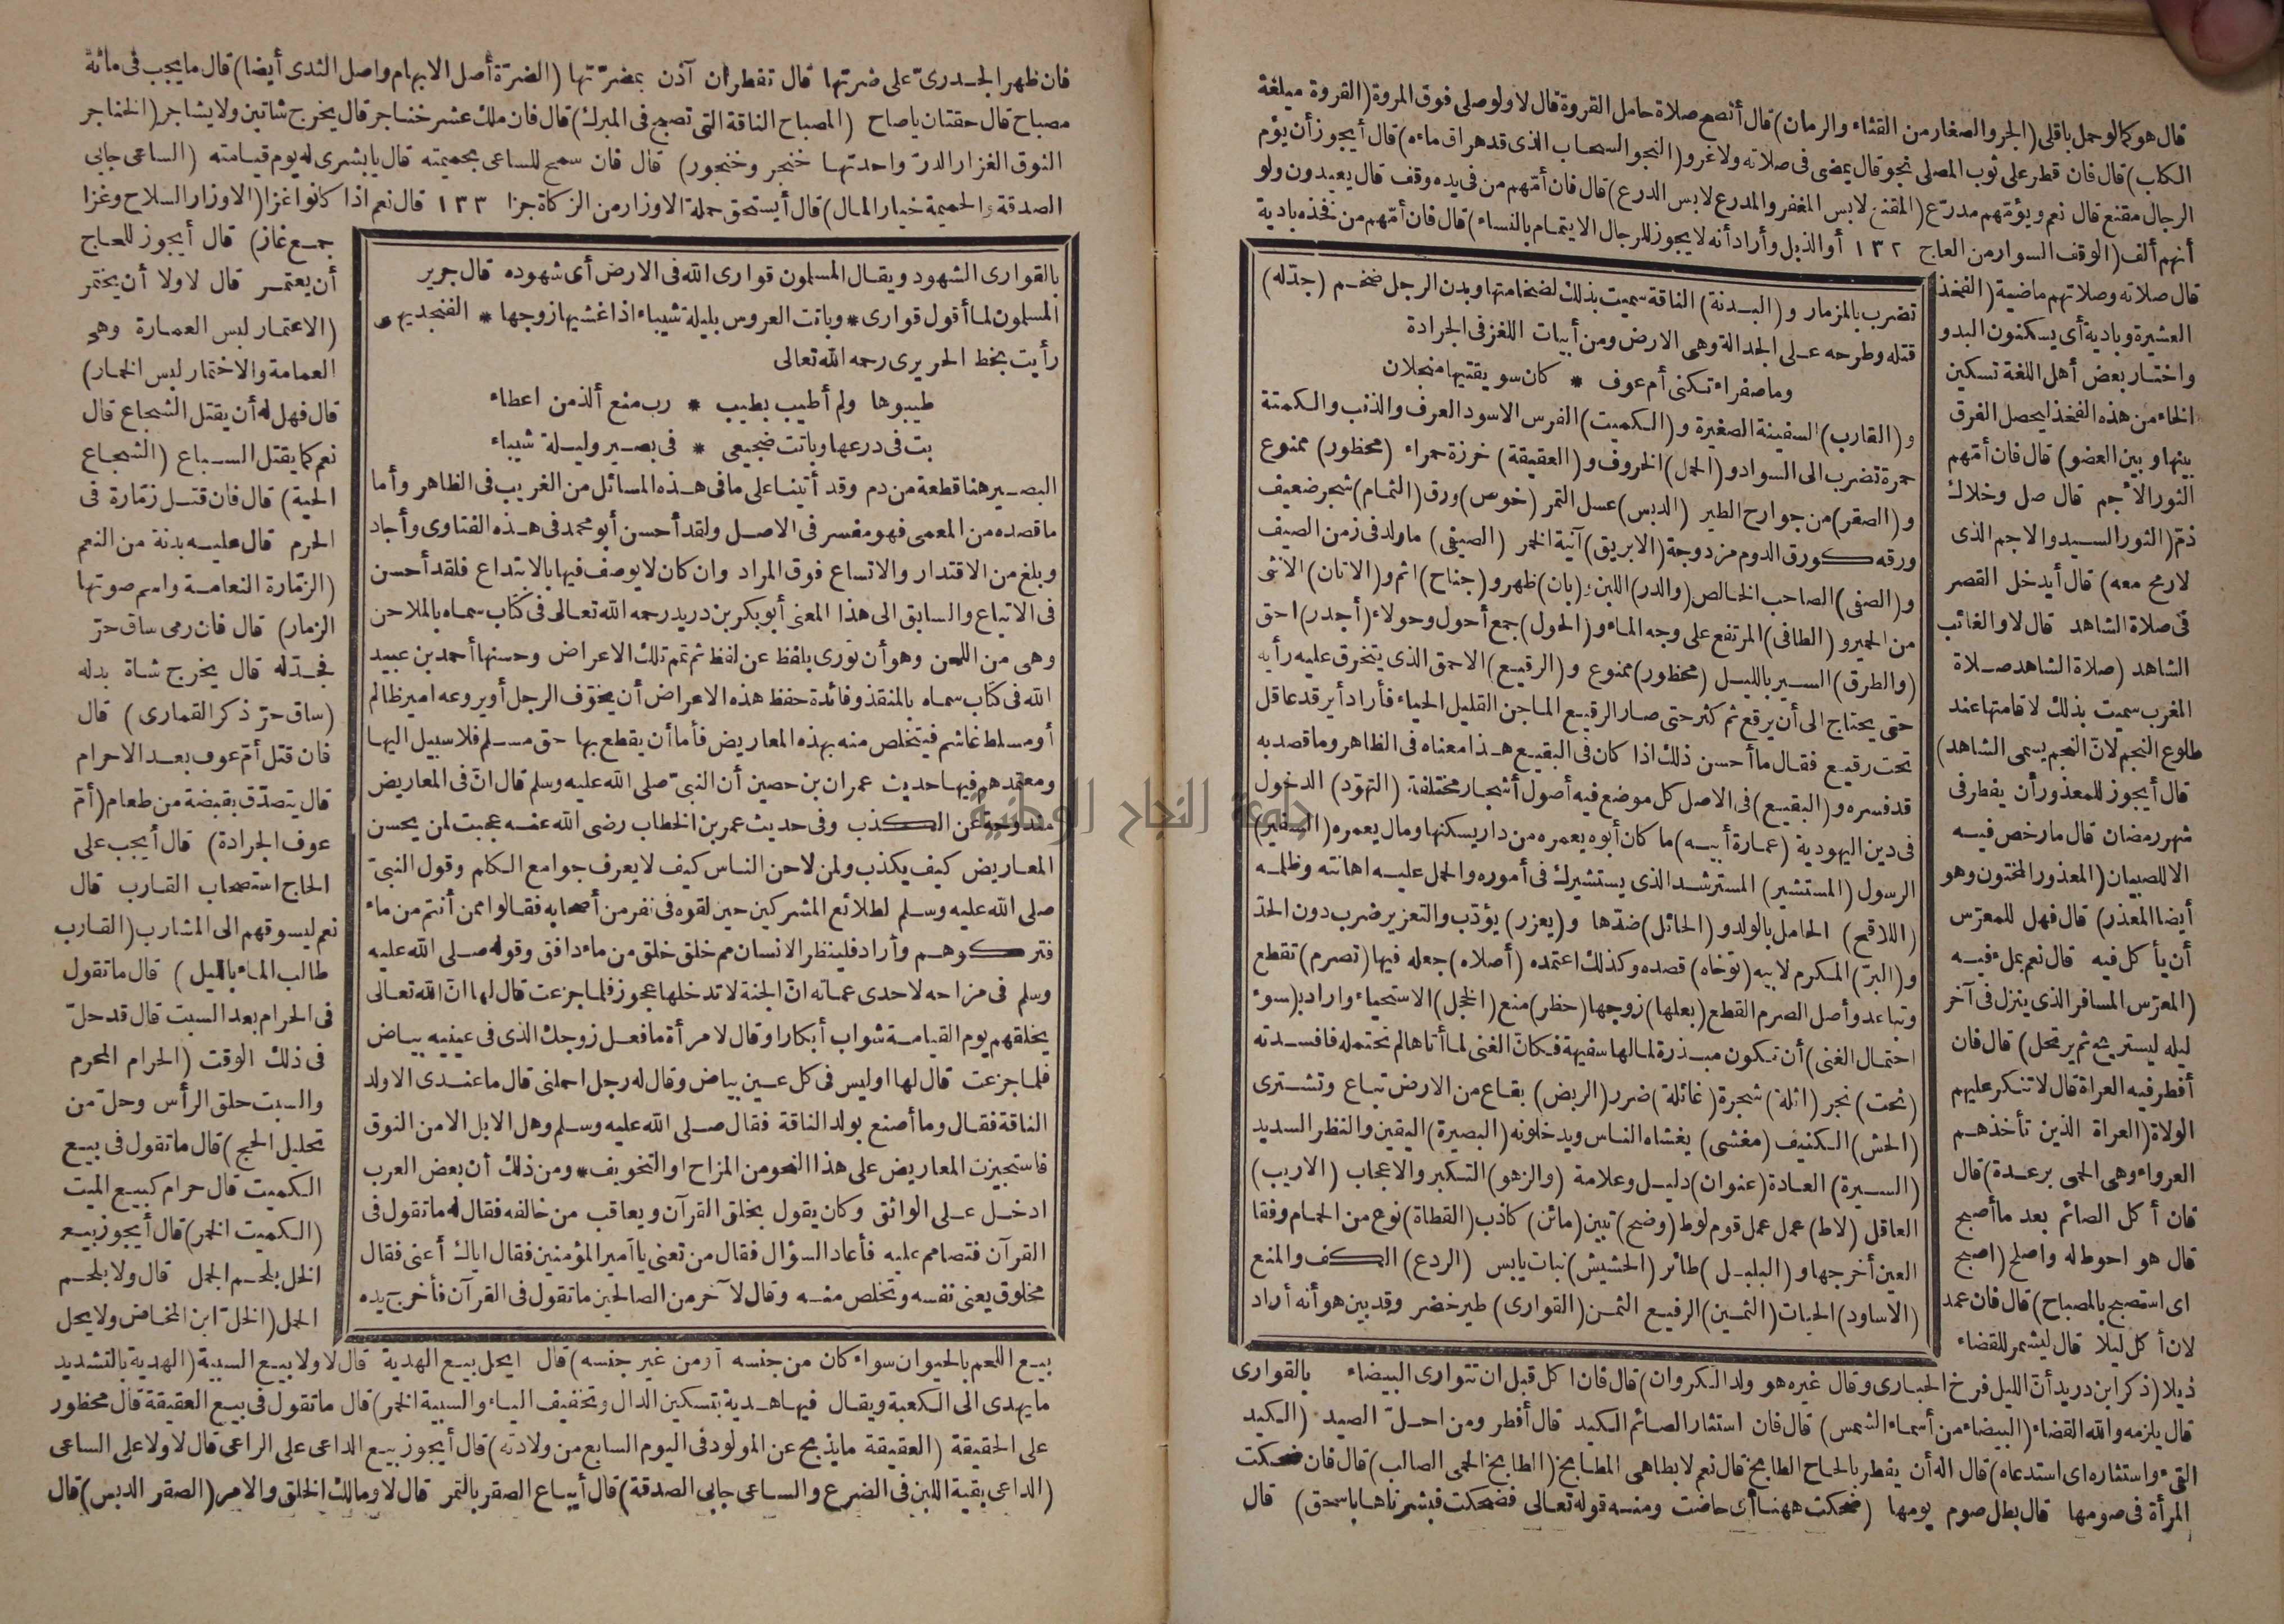 قال هو كما لو حمل باقلى (الجر والصغار من القثاء والرمان) قال أتصح صلاة حامل القروة قال لا ولو صلى فوق المروة (القروة ميلغة
الكلب) قال فان قطر على ثوب المصلى نجو قال يمضى فى صلاته ولا غرو (النجو السحاب الذى قد هراق ماءه) قال أيجوز أن يؤم
الرجال مقنع قال نعم ويؤمهم مدرّع (المقنع لابس المغفر والمدرع لابس الدرع) قال فان أمّهم من فى يده وقف قال يعيدون ولو
أنهم ألف (الوقف السوار من العاج ١٣٢ أو الذبل وأراد أنه لا يجوز للرجال الايتمام بالنساء) قال فان أمّهم من فخذه بادية
قال صلاته وصلاتهم ماضية (الفخذ
العشيرة وبادية أى يسكنون البدو
واختار بعض أهل اللغة تسكين
الخاء من هذه الفخذ ليحصل الفرق
بينها وبين العضو) قال فان أمّهم
الثور الأجم قال صل وخلاك
ذمّ (الثور السيد والاجم الذى
لا رمح معه) قال أيدخل القصر
فى صلاة الشاهد قال لا والغائب
الشاهد (صلاة الشاهد صلاة
المغرب سميت بذلك لاقامتها عند
طلوع النجم لانّ النجم يسمى الشاهد)
قال أيجوز للمعذور أن يفطر فى
شهر رمضان قال ما رخص فيه
الا للصبيان (المعذور المختون وهو
أيضا المعذر) قال فهل للمعرّس
أن يأكل فيه قال نعم بملء فيه
(المعرّس المسافر الذى ينزل فى آخر
ليله ليستريح ثم يرتحل) قال فان
أفطر فيه العراة قال لا تنكر عليهم
الولاة (العراة الذين تأخذهم
العرواء وهى الحمى برعدة) قال
فان أكل الصائم بعد ما أصبح
قال هو احوط له واصلح (اصبح
اى استصبح بالمصباح) قال فان عمد
لان أكل ليلا قال ليشمر للقضاء
ذيلا (ذكر ابن دريد أنّ الليل فرخ الحبارى وقال غيره هو ولد الكروان) قال فان اكل قبل ان تتوارى البيضاء بالقوارى
قال يلزمه والله القضاء (البيضاء من أسماء الشمس) قال فان استثار الصائم الكيد قال أفطر ومن احلّ الصيد (الكيد
القىء واستثاره اى استدعاه) قال اله أن يفطر بالحاح الطابخ قال نعم لا بطاهى المطابخ (الطابخ الحمى الصالب) قال فان ضحكت
المرأة فى صومها قال بطل صوم يومها (ضحكت ههنا أى حاضت ومنه قوله تعالى فضحكت فبشرناها باسحق) قال
تضرب بالمزمار و (البدنة) الناقة سميت بذلك لضخامتها وبدن الرجل ضخم (جدّله)
قتله وطرحه على الجدالة وهى الارض ومن أبيات اللغز فى الجرادة
وما صفراء تكنى أم عوف * كان سويقتيها منجلان
و (القارب) السفينة الصغيرة و (الكميت) الفرس الاسود العرف والذنب والكمتة
حمرة تضرب الى السواد و (الحمل) الخروف و (العقيقة) خرزة حمراء (محظور) ممنوع
و (الصقر) من جوارح الطير (الدبس) عسل التمر (خوص) ورق (الثمام) شجر ضعيف
ورقه كورق الدوم مزدوجة (الابريق) آنية الخمر (الصيفى) ما ولد فى زمن الصيف
و (الصفى) الصاحب الخالص (والدر) اللبن (بان) ظهر و (جناح) اثم و (الاتان) الانثى
من الحمير و (الطافى) المرتفع على وجه الماء و (الحول) جمع أحول وحولاء (أجدر) احق
(والطرق) السير بالليل (محظور) ممنوع و (الرقيع) الاحمق الذى يتخرق عليه رأيه
حتى يحتاج الى أن يرقع ثم كثر حتى صار الرقيع الماجن القليل الحياء فأراد أيرقد عاقل
تحت رقيع فقال ما أحسن ذلك اذا كان فى البقيع هذا معناه فى الظاهر وما قصد به
قد فسره و (البقيع) فى الاصل كل موضع فيه أصول أشجار مختلفة (التهوّد) الدخول
فى دين اليهودية (عمارة أبيه) ما كان أبوه يعمره من دار يسكنها ومال يعمره (السفير)
الرسول (المستشير) المسترشد الذى يستشيرك فى أموره والحمل عليه اهانته وظلمه
(اللاقح) الحامل بالولد و (الحائل) ضدّها و (يعزر) يؤدّب والتعزير ضرب دون الحدّ
و (البرّ) المكرم لابيه (توّخاه) قصده وكذلك اعتمده (أصلاه) جعله فيها (تصرم) تقطع
وتباعد وأصل الصرم القطع (بعلها) زوجها (حظر) منع (الخجل) الاستحياء واراد بـ (سوء
احتمال الغنى) أن تكون مبذرة لمالها سفيهة فكانّ الغنى لما أتاها لم تحتمله فافسدته
(نحت) نجر (اثلة) شجرة (غائلة) ضرر (الربض) بقاع من الارض تباع وتشترى
(الحش) الكنيف (مغشى) يغشاه الناس ويدخلونه (البصيرة) اليقين والنظر السديد
(السيرة) العادة (عنوان) دليل وعلامة (والزهو) التكبر والاعجاب (الاريب)
العاقل (لاط) عمل عمل قوم لوط (وضح) تبين (مائن) كاذب (القطاة) نوع من الحمام وفقا
العين أخرجها و (البلبل) طائر (الحشيش) نبات يابس (الردع) الكف والمنع
(الاساود) الحيات (الثمين) الرفيع الثمن (القوارى) طير خضر وقد بين هو أنه أراد
فان ظهر الجدرىّ على ضرتها قال تفطر ان آذن بمضرّتها (الضرّة أصل الابهام واصل الثدى أيضا) قال ما يجب فى مائة
مصباح قال حقتان يا صاح (المصباح الناقة التى تصبح فى المبرك) قال فان ملك عشر خناجر قال يخرج شاتين ولا يشاجر (الخناجر
النوق الغزار الدرّ واحدتها خنجر وخنجور) قال فان سمح للساعى بحميمته قال يا بشرى له يوم قيامته (الساعى جابى
الصدقة والحميمة خيار المال) قال أيستحق حملة الاوزار من الزكاة جزا ١٣٣ قال نعم اذا كانوا غزا (الاوزار السلاح وغزا
جمع غاز) قال أيجوز للحاج
أن يعتمر قال لا ولا أن يختمر
(الاعتمار لبس العمارة وهى
العمامة والاختمار لبس الخمار)
قال فهل له أن يقتل الشجاع قال
نعم كما يقتل السباع (الشجاع
الحية) قال فان قتل زمّارة فى
الحرم قال عليه بدنة من النعم
(الزمّارة النعامة واسم صوتها
الزمار) قال فان رمى ساق حرّ
فجدّله قال يخرج شاة بدله
(ساق حرّ ذكر القمارى) قال
فان قتل أمّ عوف بعد الاحرام
قال يتصدّق بقبضة من طعام (أمّ
عوف الجرادة) قال أيجب على
الحاج استصحاب القارب قال
نعم ليسوقهم الى المشارب (القارب
طالب الماء بالليل) قال ما تقول
فى الحرام بعد السبت قال قد حلّ
فى ذلك الوقت (الحرام المحرم
والسبت حلق الرأس وحلّ من
تحليل الحج) قال ما تقول فى بيع
الكميت قال حرام كبيع الميت
(الكميت الخمر) قال أيجوز بيع
الخل بلحم الجمل قال ولا بلحم
الحمل (الخلّ ابن المخاض ولا يحل
بيع اللحم بالحيوان سواء كان من جنسه أو من غير جنسه) قال ايحل بيع الهدية قال لا ولا بيع السبية (الهدية بالتشديد
ما يهدى الى الكعبة ويقال فيها هدية بتسكين الدال وتخفيف الياء والسبية الخمر) قال ما تقول فى بيع العقيقة قال محظور
على الحقيقة (العقيقة ما يذبح عن المولود فى اليوم السابع من ولادته) قال أيجوز بيع الداعى على الراعى قال لا ولا على الساعى
(الداعى بقية اللبن فى الضرع والساعى جابى الصدقة) قال أيباع الصقر بالتمر قال لا ومالك الخلق والامر (الصقر الدبس) قال
بالقوارى الشهود ويقال المسلمون قوارى الله فى الارض أى شهوده قال جرير
المسلمون لما أقول قوارى * وباتت العروس بليلة شيباء اذا غشيها زوجها * الفنجديهى
رأيت بخط الحريرى رحمه الله تعالى
طيبوها ولم أطيب بطيب * رب منع ألذ من اعطاء
بت فى درعها وباتت ضجيعى * فى بصير وليلة شيباء
البصير هنا قطعة من دم وقد أتينا على ما فى هذه المسائل من الغريب فى الظاهر وأما
ما قصده من المعمى فهو مفسر فى الاصل ولقد أحسن أبو محمد فى هذه الفتاوى وأجاد
وبلغ من الاقتدار والاتساع فوق المراد وان كان لا يوصف فيها بالابتداع فلقد أحسن
فى الاتباع والسابق الى هذا المعنى أبو بكر بن دريد رحمه الله تعالى فى كتاب سماه بالملاحن
وهى من اللحن وهو أن تورى بلفظ عن لفظ ثم تمم تلك الاعراض وحسنها أحمد بن عبيد
الله فى كتاب سماه بالمنقذ وفائدة حفظ هذه الاعراض أن يخوّف الرجل أو يروعه امير ظالم
أو مسلط غاشم فيتخلص منه بهذه المعاريض فأما أن يقطع بها حق مسلم فلا سبيل اليها
ومعتمدهم فيها حديث عمران بن حصين أن النبىّ صلى الله عليه وسلم قال انّ فى المعاريض
مندوحة عن الكذب وفى حديث عمر بن الخطاب رضى الله عنه عجبت لمن يحسن
المعاريض كيف يكذب ولمن لاحن الناس كيف لا يعرف جوامع الكلم وقول النبىّ
صلى الله عليه وسلم لطلائع المشركين حين لقوه فى نفر من أصحابه فقالوا ممن أنتم من ماء
فتركوهم وأراد فلينظر الانسان مم خلق خلق من ماء دافق وقوله صلى الله عليه
وسلم فى مزاحه لاحدى عماته انّ الجنة لا تدخلها عجوز فلما جزعت قال لها انّ الله تعالى
يخلقهم يوم القيامة شواب أبكارا وقال لامرأة ما فعل زوجك الذى فى عينيه بياض
فلما جزعت قال لها اوليس فى كل عين بياض وقال له رجل احملنى قال ما عندى الا ولد
الناقة فقال وما أصنع بولد الناقة فقال صلى الله عليه وسلم وهل الابل الا من النوق
فاستجيزت المعاريض على هذا النحو من المزاح او التخويف * ومن ذلك أن بعض العرب
ادخل على الواثق وكان يقول بخلق القرآن ويعاقب من خالفه فقال له ما تقول فى
القرآن فتصامم عليه فأعاد السؤال فقال من تعنى يا أمير المؤمنين فقال اياك أعنى فقال
مخلوق يعنى نفسه وتخلص منه وقال لآخر من الصالحين ما تقول فى القرآن فأخرج يده
جامعة النجاح الوطنية